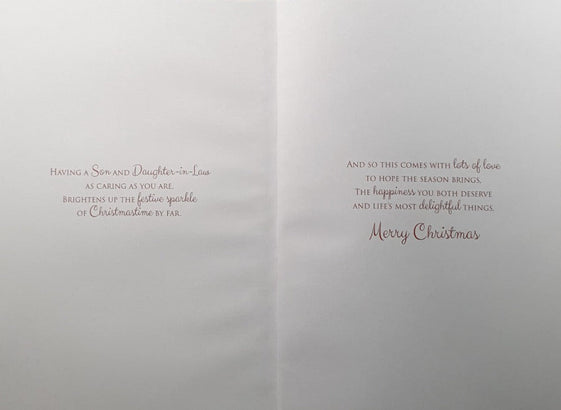 Having a Son and Daughter-in-Law
as caring as you are,
Brightens up the festive sparkle
of Christmastime by far.
And so this comes with lots of love
to hope the season brings,
The happiness you both deserve
and life's most delightful things.
Merry Christmas